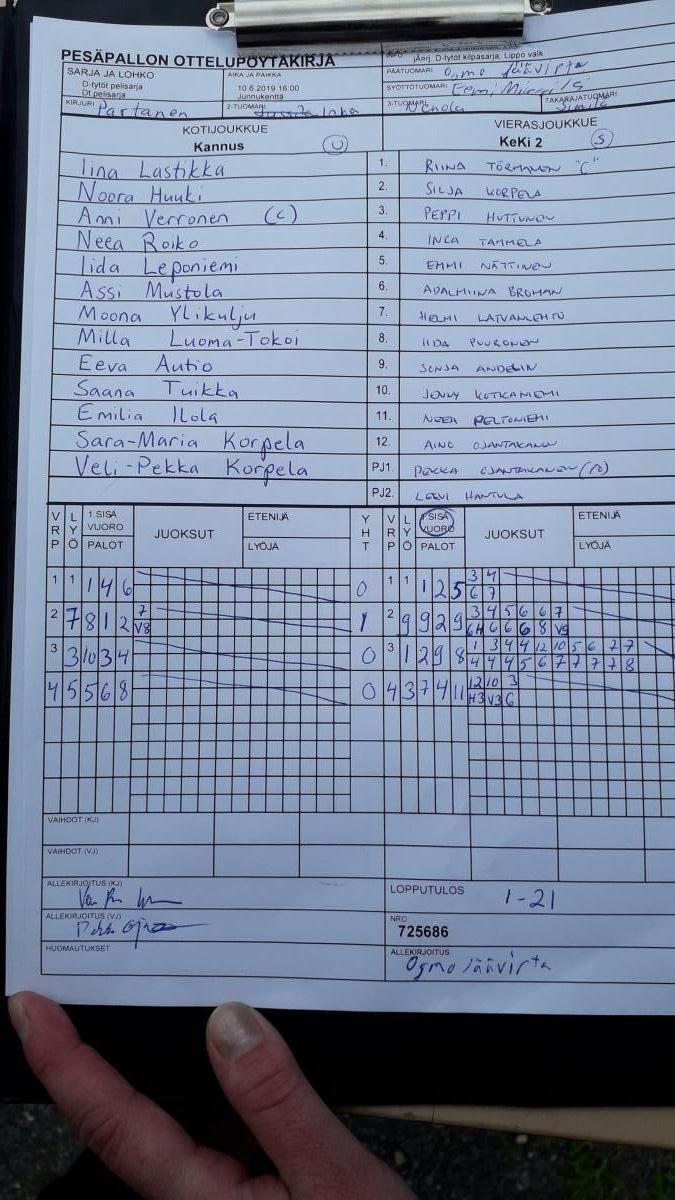 PESÄPALLON OTTELUPÖYTÄKIRJA
jÄerj. D-tytöt kilpasarja, Lippo valk
SARJA JA LOHKO
D-tytöt pelisarja
Dt pelisarja
AIKA JA PAIKKA
10.6.2019 16:00
Junnukenttä
PÄÄTUOMARI Osmo Jäävirta
SYÖTTÖTUOMARI Eemi
KIRJURI Partanen
2-TUOMARI Inka
3-TUOMARI
TAKARAJATUOMARI
KOTIJOUKKUE
Kannus U
VIERASJOUKKUE
KeKi 2 S
Iina Lastikka 1. RIINA TÖRMÄNEN "C"
Noora Huuki 2. SILJA KORPELA
Anni Verronen (C) 3. PEPPI HUTTUNEN
Neea Roiko 4. INCA TAMMELA
Iida Leponiemi 5. EMMI NÄTTINEN
Assi Mustola 6. ADALMIINA BROMAN
Moona Ylikulju 7. HELMI LATVANLEHTO
Milla Luoma-Tokoi 8. IIDA PUURONEN
Eeva Autio 9. SONJA ANDELIN
Saana Tuikka 10. JENNY KOTKANIEMI
Emilia Ilola 11. NEEA PELTONIEMI
Sara-Maria Korpela 12. AINO OJANTAKANEN
Veli-Pekka Korpela PJ1. PEKKA OJANTAKANEN
PJ2. LEEVI HANTULA
VRP LYÖ 1.SISÄ VUORO PALOT JUOKSUT ETENIJÄ LYÖJÄ YHT VRP LYÖ 1.SISÄ VUORO PALOT JUOKSUT ETENIJÄ LYÖJÄ
1 1 1 4 6 0 1 1 1 2 5 3 4
6 7
2 7 8 1 2 7 1 2 9 9 2 9 3 4 5 6 6 7
V8 6H 6 6 6 8 V9
3 3 10 3 4 0 3 1 2 9 8 1 3 4 4 12 10 5 6 7 7
4 4 4 5 6 7 7 7 7 8
4 5 5 6 8 0 4 3 7 4 11 12 10 3
H3 V3 6
VAIHDOT (KJ)
VAIHDOT (VJ)
ALLEKIRJOITUS (KJ)
LOPPUTULOS 1-21
ALLEKIRJOITUS (VJ)
NRO
725686
HUOMAUTUKSET
ALLEKIRJOITUS
Osmo Jäävirta